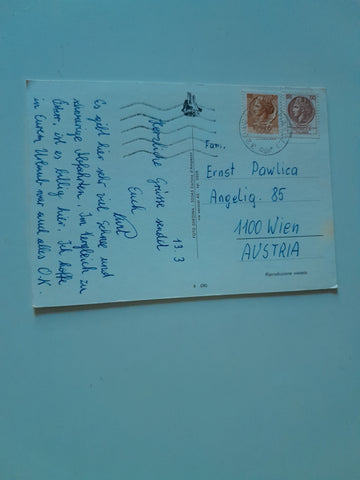 13.3
Herzliche Grüsse sendet
Euch
Es gibt hier sehr viel Schnee und
schwierige Abfahrten. Im Vergleich zu
ist es billig hier. Ich hoffe
in Eurem Urlaub war auch alles O.K.
Fam.
Ernst Pawlica
Angelig. 85
1100 Wien
AUSTRIA
Riproduzione vietata